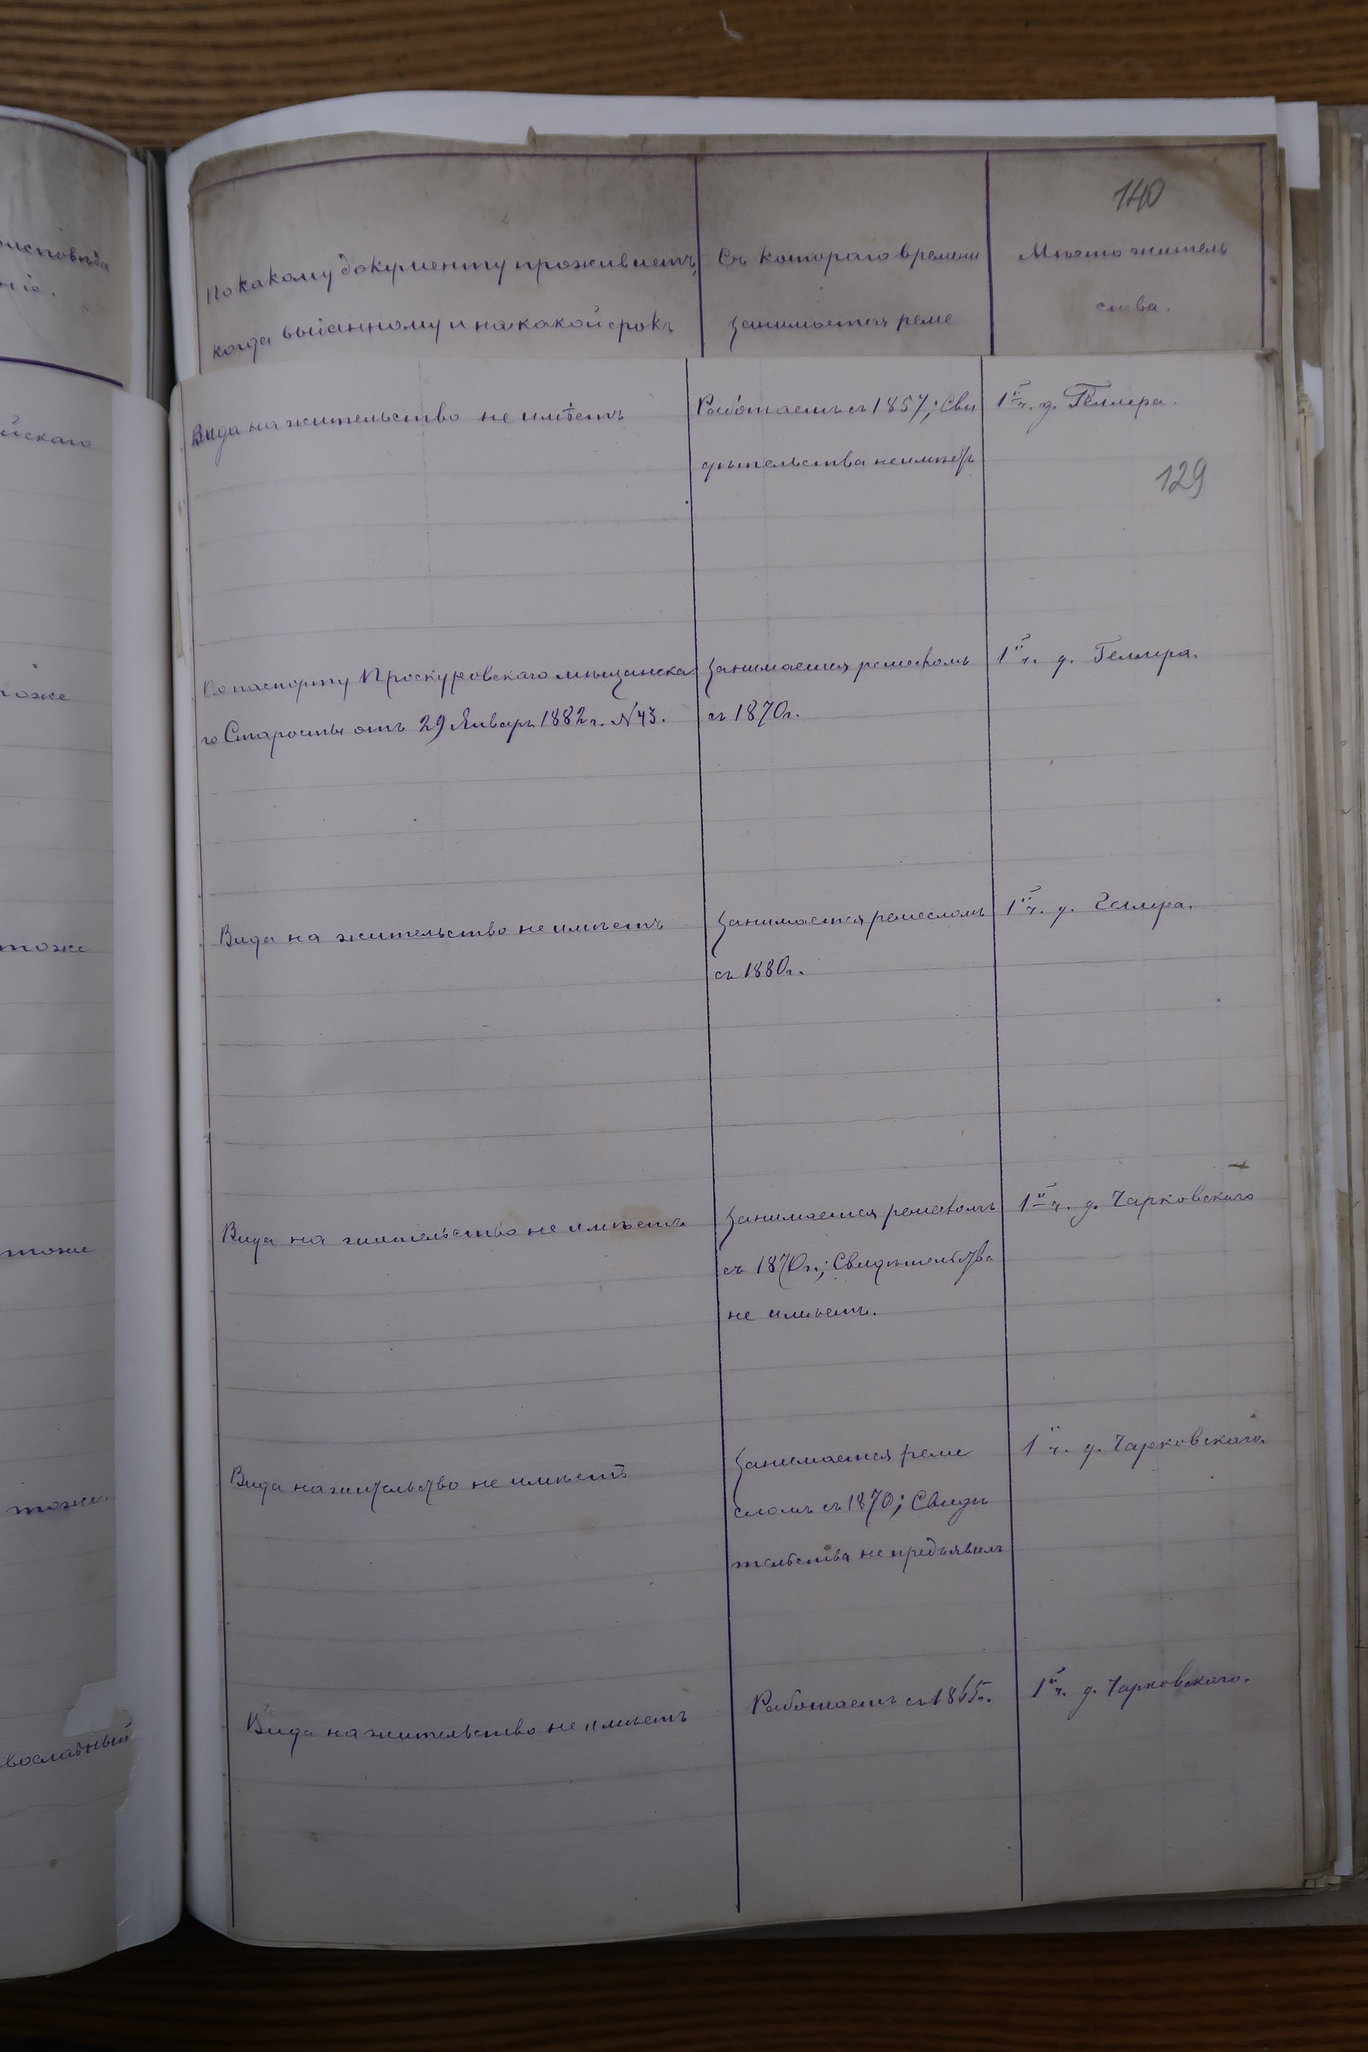 140
По какому документу проживаетъ,
когда выданному и на какой срокъ
Съ котораго времени
занимается реме
Мѣсто житель
ства.
129
Вида на жительство не имѣетъ
Работаетъ съ 1857; Сви
дѣтельства не имѣетъ
1й ч. д. Геллера.
По паспорту Проскуровскаго мѣщанска
го Старосты отъ 29 Январ. 1882 г. №43.
Занимается ремесломъ
съ 1870 г.
1й ч. д. Геллера.
Вида на жительство не имѣетъ
Занимается ремесломъ
съ 1880 г.
1й ч. д. Геллера.
Вида на жительство не имѣетъ
Занимается ремесломъ
съ 1870 г.; Свидѣтельства
не имѣетъ.
1й ч. д. Чарковскаго
Вида на жительство не имѣетъ
Занимается реме
сломъ съ 1870; Свидѣ
тельства не предъявилъ
1й ч. д. Чарковскаго.
Вида на жительство не имѣетъ
Работаетъ съ 1865 г.
1й ч. д. Чарковскаго.
йскаго
тоже
тоже
тоже
тоже.
вославный